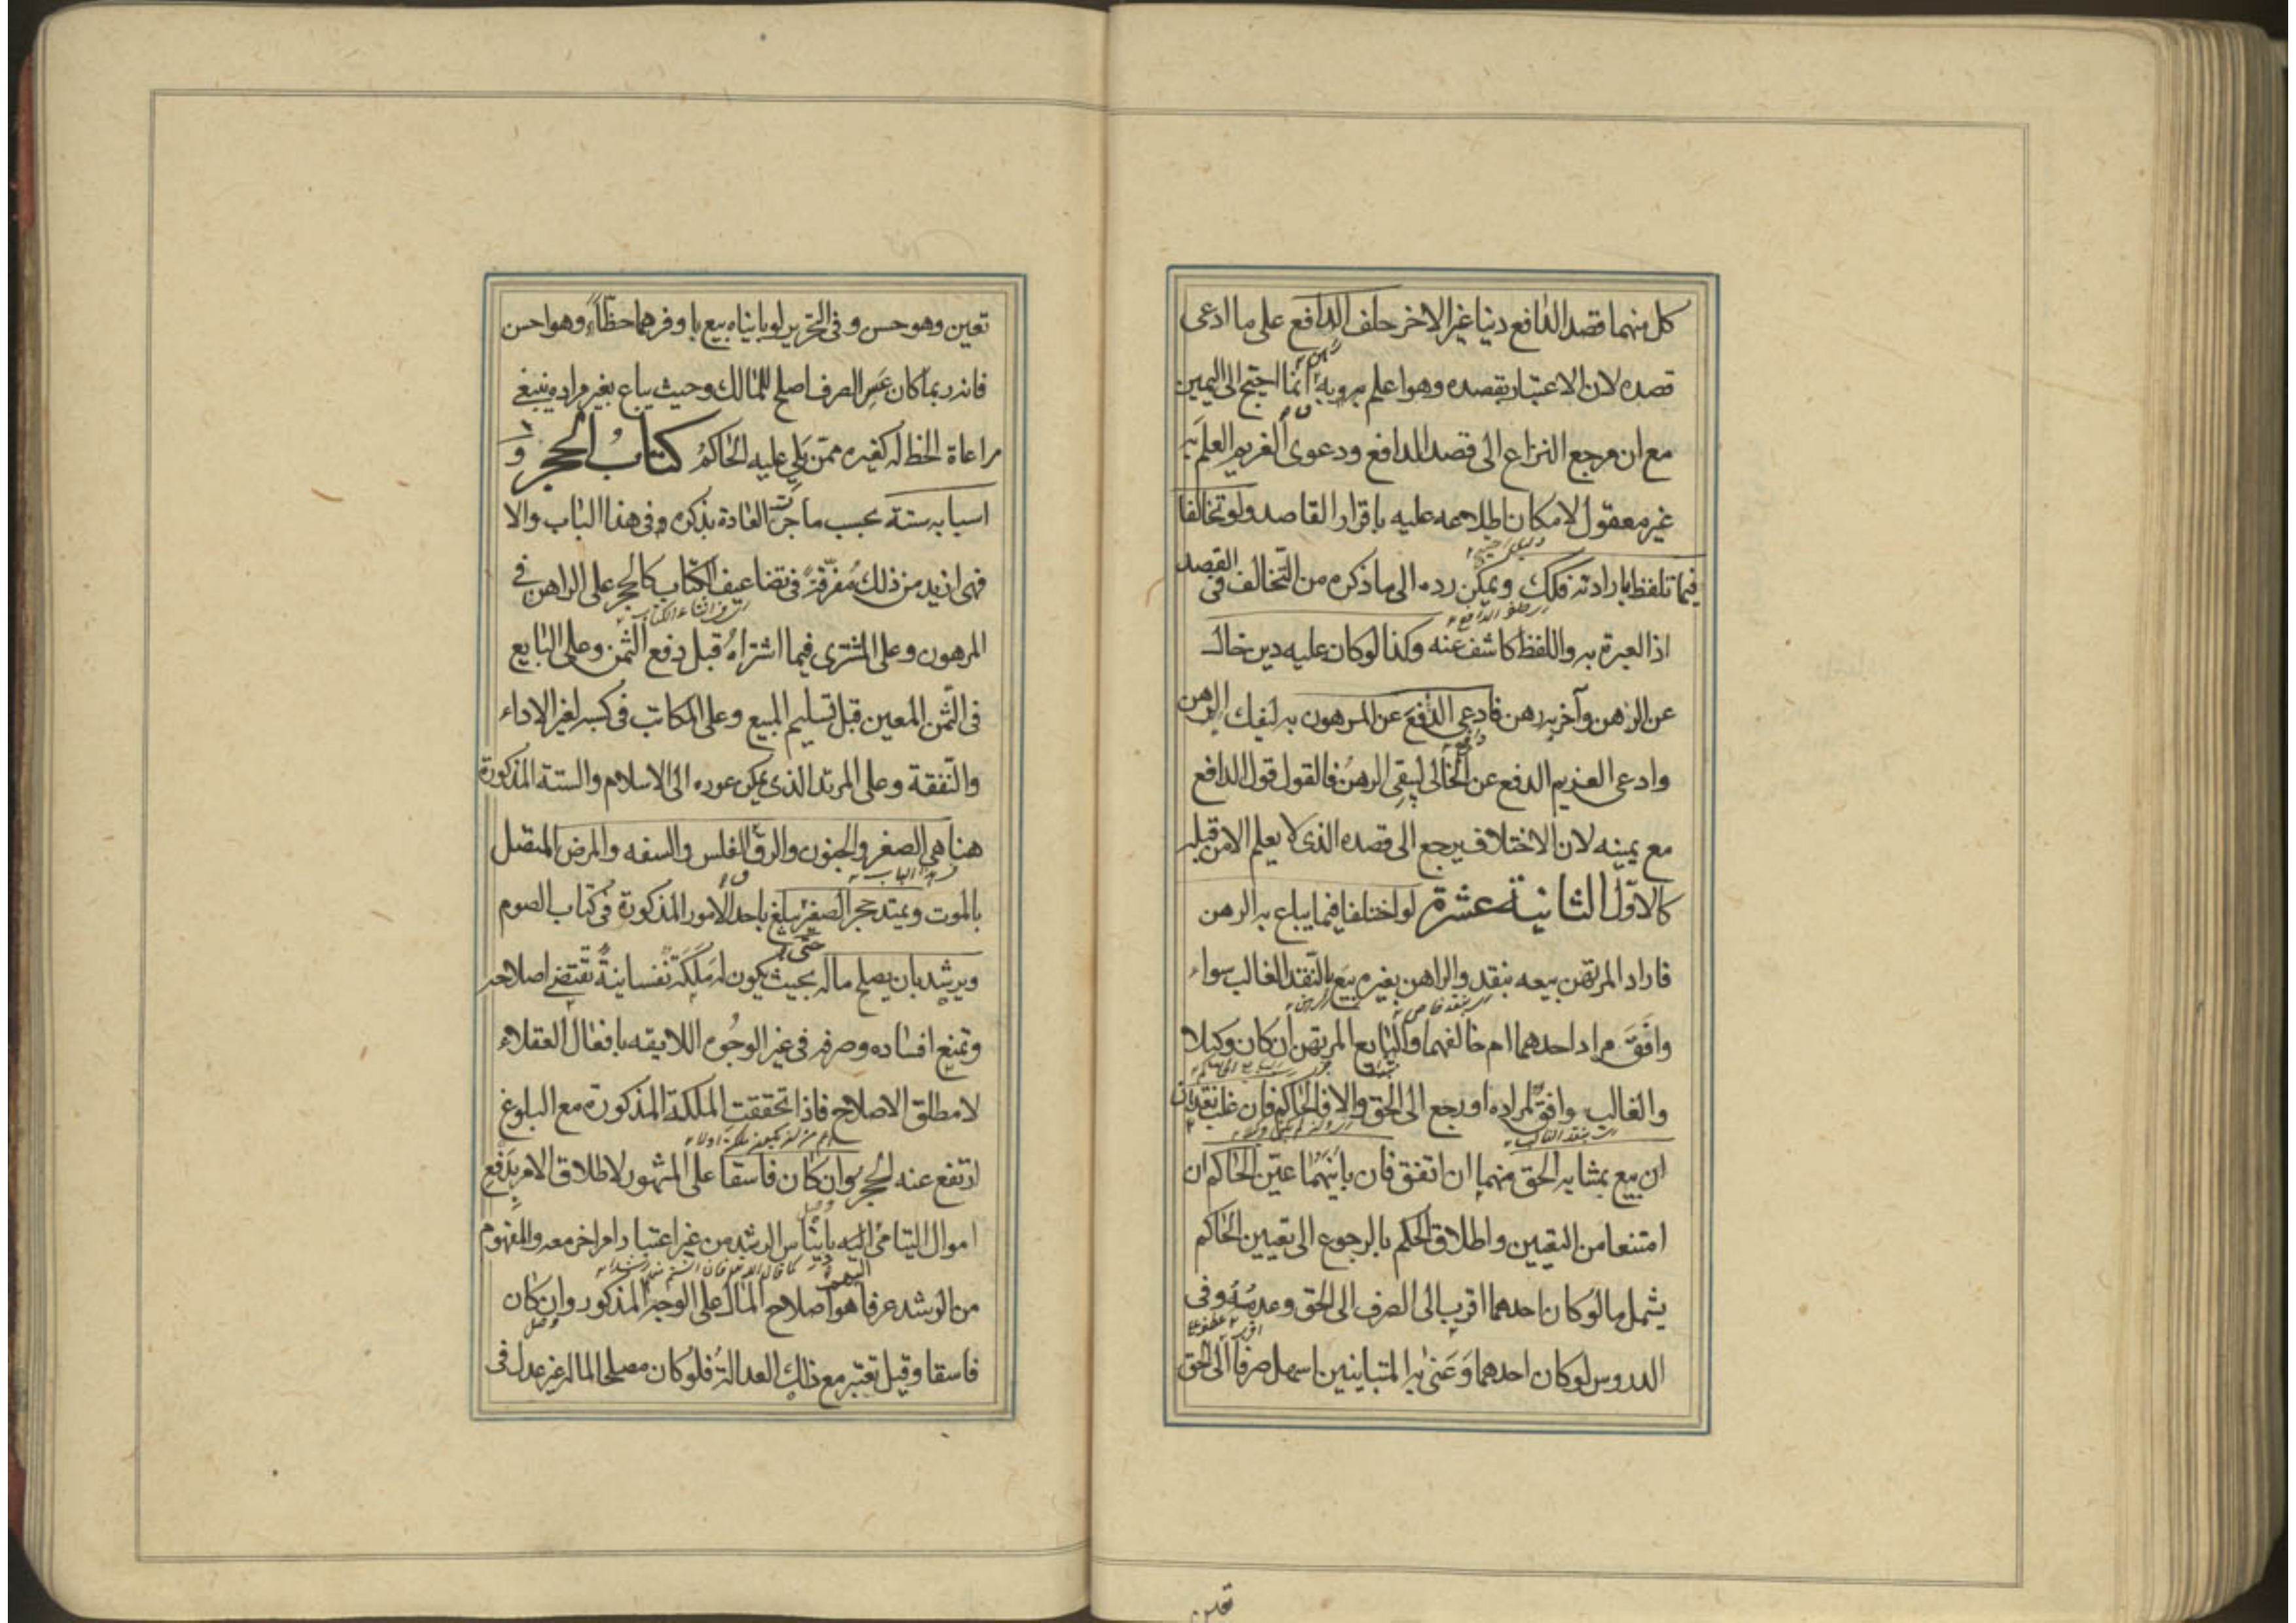 كل منهما قصد الدافع دينا غير الاخر حلف الدافع على ما ادعى
قصده لان الاعتبار بقصده وهو اعلم به وانما احتيج الى اليمين
مع ان مرجع النزاع الى قصد الدافع ودعوى الغريم العلم به
غير معقول لامكان اطلاعه عليه باقرار القاصد ولو تخالفا
فيما تلفظ بارادته فكك ويمكن رده الى ما ذكره من التخالف فى القصد
اذ العبرة به واللفظ كاشف عنه وكذا لو كان عليه دين خال
عن الرهن وآخر به رهن فادعى الدفع عن المرهون به ليفك الرهن
وادعى الغريم الدفع عن الخالى ليبقى الرهن فالقول قول الدافع
مع يمينه لان الاختلاف يرجع الى قصده الذى لا يعلم الا من قبله
كالاول الثانية عشرة لو اختلفا فيما يباع به الرهن
فاراد المرتهن بيعه بنقد والراهن بغيره بيع بالنقد الغالب سواء
وافق مراد احدهما ام خالفهما والبايع المرتهن ان كان وكيلا
والغالب وافق لمراده او رجع الى الحق والا فالحاكم فان غلب نقدان
ان بيع بمشابه الحق منهما ان اتفق فان بايناهما عين الحاكم ان
امتنعا من التعيين واطلاق الحكم بالرجوع الى تعيين الحاكم
يشمل ما لو كان احدهما اقرب الى الصرف الى الحق وعدمه وفى
الدروس لو كان احدهما وعنى به المتباينين اسهل صرفا الى الحق
تعين
تعين وهو حسن وفى التحرير لو بايناه بيع باوفرهما حظا وهو احسن
فانه ربما كان عسر الصرف اصلح للمالك وحيث يباع بغير مراده ينبغى
مراعاة الحظ له كغيره ممن يلى عليه الحاكم كتاب الحجر و
اسبابه ستة بحسب ما جرت العادة بذكره فى هذا الباب والا
فهى ازيد من ذلك مفرقة فى تضاعيف الكتاب كالحجر على الراهن فى
المرهون وعلى المشترى فيما اشتراه قبل دفع الثمن وعلى البايع
فى الثمن المعين قبل تسليم المبيع وعلى المكاتب فى كسبه لغير الاداء
والنفقة وعلى المرتد الذى يمكن عوده الى الاسلام والستة المذكورة
هنا هى الصغر والجنون والرق والفلس والسفه والمرض المتصل
بالموت ويمتد حجر الصغر يبلغ باحد الامور المذكورة فى كتاب الصوم
حتى
ويرشد بان يصلح ماله بحيث يكون له ملكة نفسانية تقتضى اصلاحه
وتمنع افساده وصرفه فى غير الوجوه اللايقه بافعال العقلاء
لا مطلق الاصلاح فاذا تحققت الملكة المذكورة مع البلوغ
ارتفع عنه الحجر وان كان فاسقا على المشهور لاطلاق الامر بدفع
اموال اليتامى اليه بايناس الرشد من غير اعتبار امر اخر معه والمفهوم
من الرشد عرفا هو اصلاح المال على الوجه المذكور وان كان
فاسقا وقيل تعتبر مع ذلك العدالة فلو كان مصلحا لماله غير عدل فى